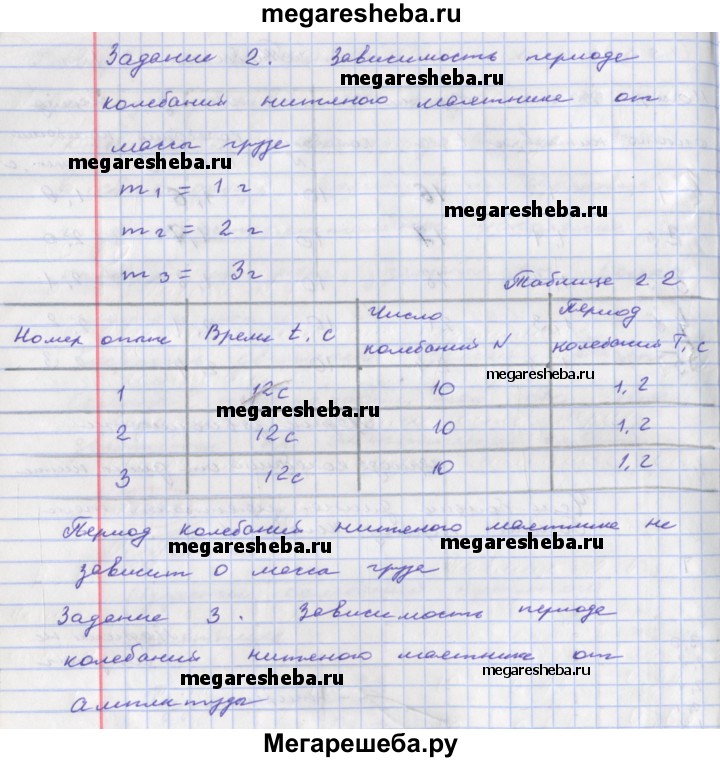 megaresheba.ru
Задание 2. Зависимость периода
megaresheba.ru
колебаний нитяного маятника от
массы груза
megaresheba.ru
m1 = 1 г
megaresheba.ru
m2 = 2 г
m3 = 3г
Таблица 22
Номер опыта Время t, с Число колебаний N Период колебаний T, с
megaresheba.ru
1 12с 10 1,2
megaresheba.ru
2 12с 10 1,2
3 12с 10 1,2
Период колебаний нитяного маятника не
megaresheba.ru megaresheba.ru
зависит о масса груза
Задание 3. Зависимость периода
колебаний нитяного маятника от
megaresheba.ru megaresheba.ru
амплитуды
Мегарешеба.ру